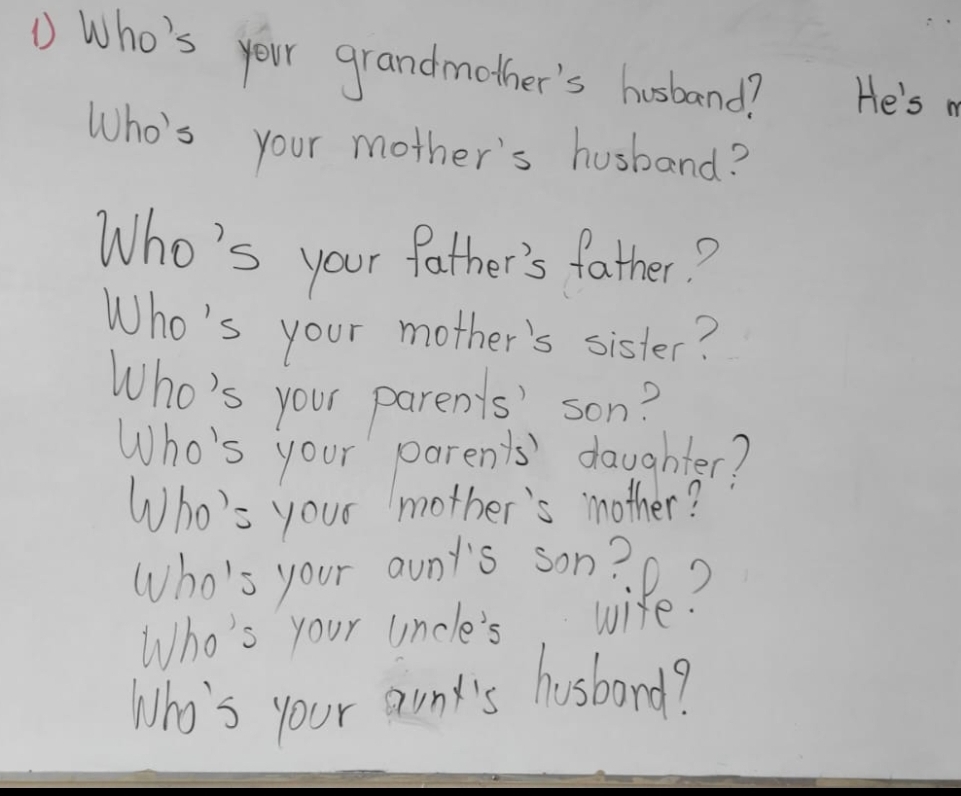 1) Who's your grandmother's husband? He's
Who's your mother's husband?
Who's your father's father?
Who's your mother's sister?
Who's your parents' son?
Who's your parents' daughter?
Who's your mother's mother?
Who's your aunt's son?
Who's your uncle's wife?
Who's your aunt's husband?